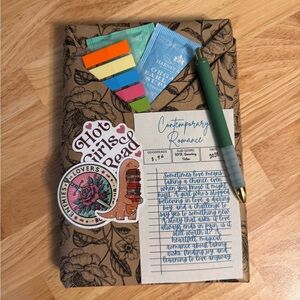 HARNEY
ORGANIC
EARL GREY
SUPREME
Contemporary
Romance
GOODREADS
SUB-GENRE
3.96
Hot
Girls
Read
ENEMIES
LOVERS
Sometimes love means
taking a chance even
when you know it might
hurt. A girl who's stopped
believing in love, a daring
boy, and a challenge to
say yes to something new.
A story that asks, if love
always ends in pain, is it
still worth it? A
heartfelt, magical
romance about taking
risks, finding joy, and
learning to love anyway.